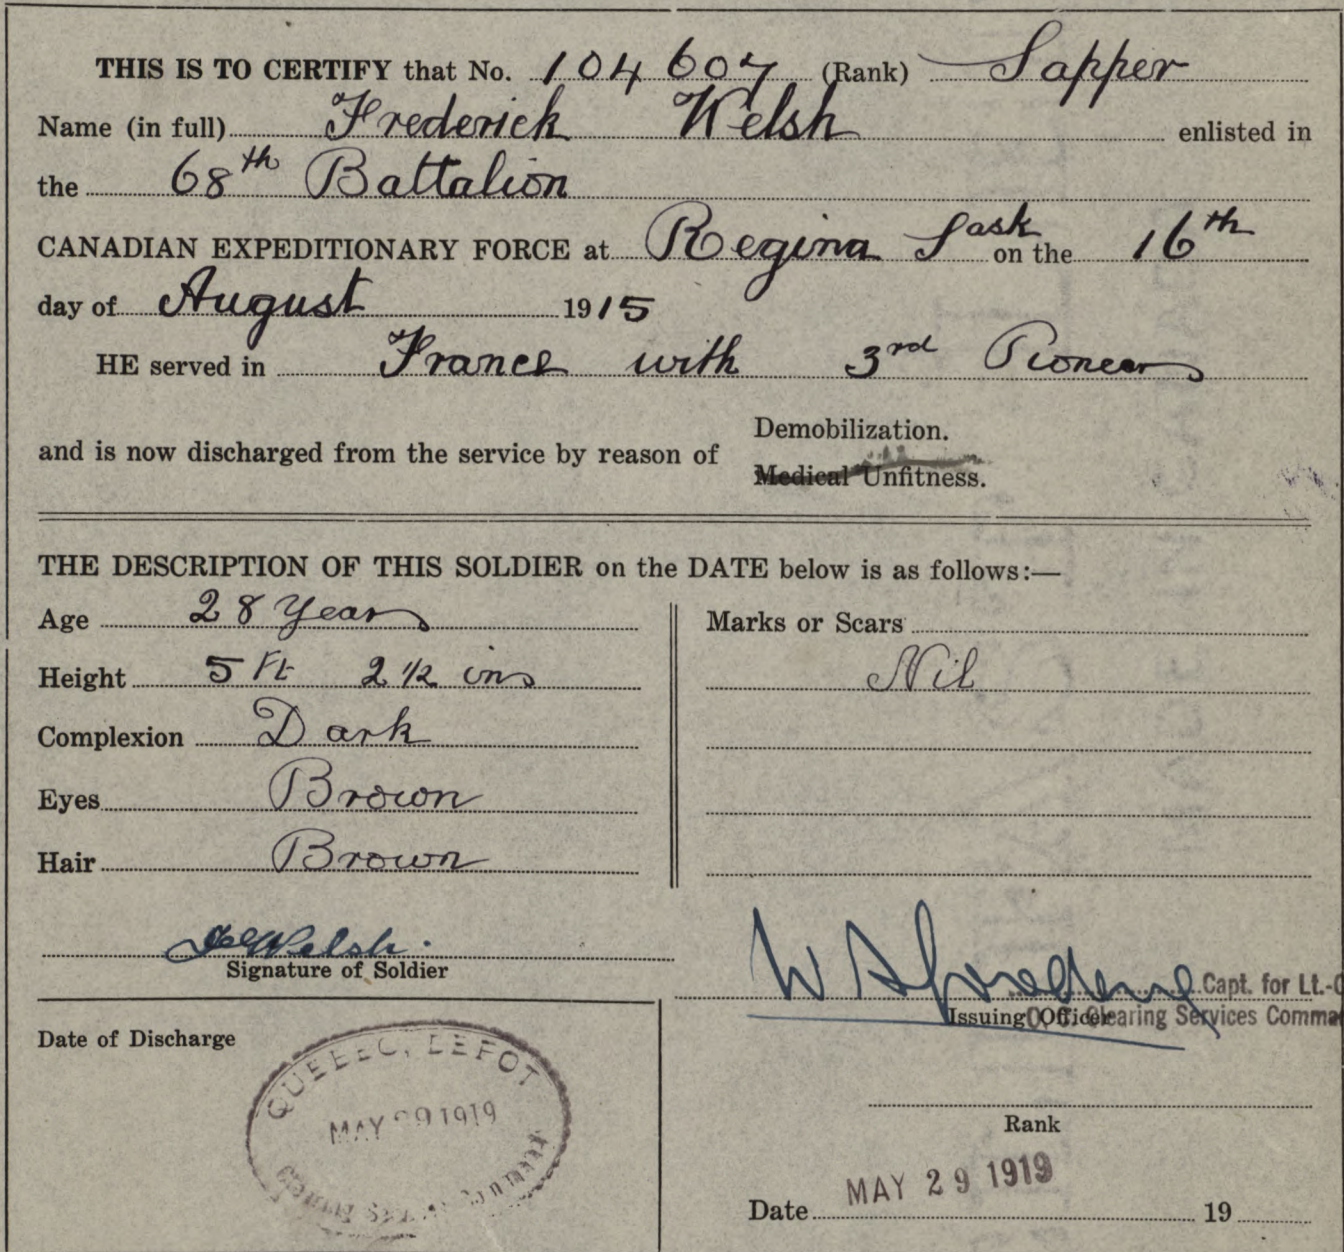 THIS IS TO CERTIFY that No. 104607 (Rank) Sapper
Name (in full) Frederick Welsh enlisted in
the 68th Battalion
CANADIAN EXPEDITIONARY FORCE at Regina Sask on the 16th
day of August 1915
HE served in France with 3rd Pioneers
and is now discharged from the service by reason of
Demobilization.
Medical Unfitness.
THE DESCRIPTION OF THIS SOLDIER on the DATE below is as follows:—
Age 28 Years
Height 5 Ft 2 1/2 ins
Complexion Dark
Eyes Brown
Hair Brown
Marks or Scars
Nil
Welsh.
Signature of Soldier
Capt. for Lt.-C
Issuing Officer
Clearing Services Comma
Date of Discharge
QUEBEC, DEPOT
MAY 29 1919
Rank
Date MAY 29 1919 19